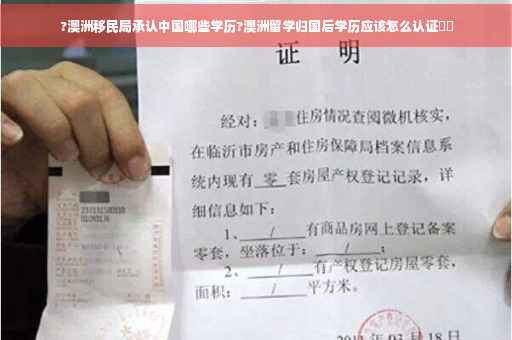 ?澳洲移民局承认中国哪些学历?澳洲留学归国后学历应该怎么认证
证 明
经对: 住房情况查阅微机核实,
在临沂市房产和住房保障局档案信息系
统内现有 零 套房屋产权登记记录, 详
细信息如下:
1、 / 有商品房网上登记备案
零套, 坐落位于: / ;
2、 / 有产权登记房屋零套,
面积: / 平方米。
03月18日